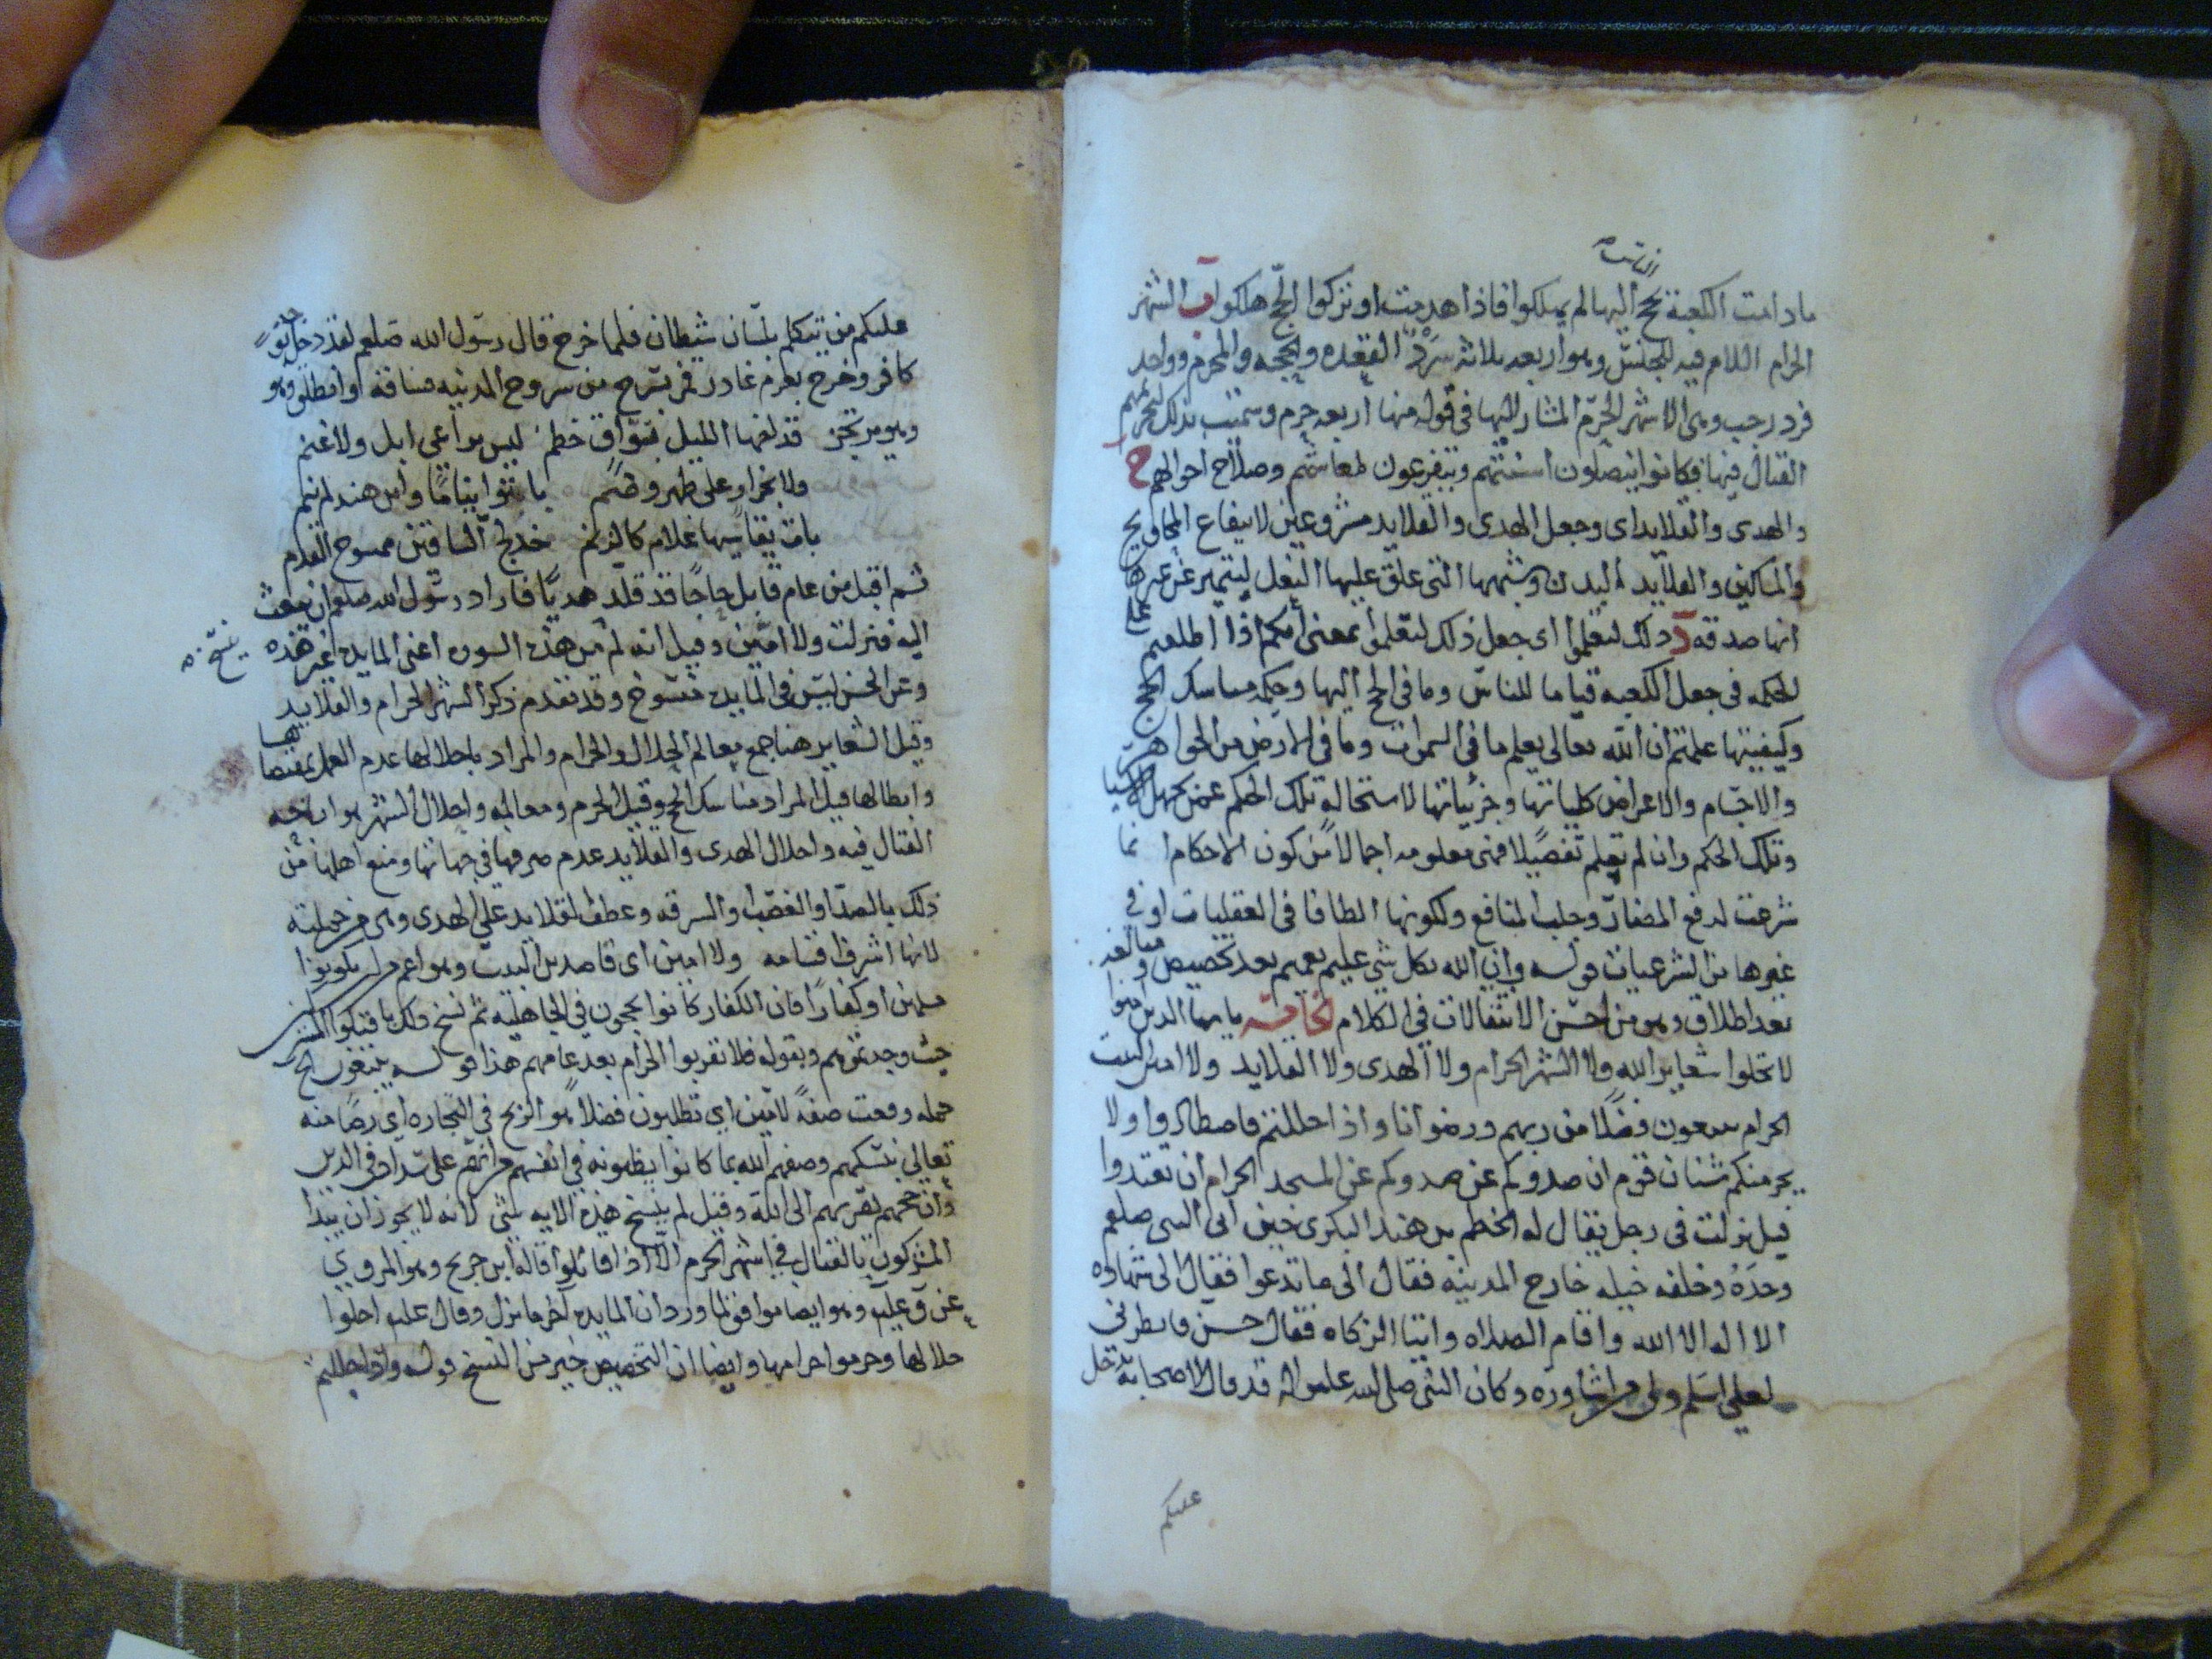 الناس
ما دامت الكعبة يحج اليها لم يهلكوا فاذا هدمت او تركوا الحج هلكوا ب الشهر
الحرام اللام فيه للجنس وهو اربعه ثلاثه سرد القعده والحجه والمحرم وواحد
فرد رجب وهى الاشهر الحرم المشار اليها فى قوله منها اربعه حرم وسميت بذلك لتحريمهم
القتال فيها فكانوا ينصلون اسنتهم ويتفرغون لمعاشهم وصلاح احوالهم ح
والهدى والقلايد اى وجعل الهدى والقلايد مشروعين لانتفاع المحاويج
والمساكين والقلايد البدن وشبهها التى علق عليها النعل ليتميز عن غيرها
انها صدقه د ذلك لتعلموا اى جعل ذلك لتعلموا بمعنى انكم اذا اطلعتم على
الحكمه فى جعل الكعبه قياما للناس وما فى الحج اليها وحكمه مناسك الحج
وكيفيتها علمتم ان الله تعالى يعلم ما فى السموات وما فى الارض من الجواهر
والاجسام والاعراض كلياتها وجزئياتها لاستحالة تلك الحكم عمن يجهل الاشيا
وتلك الحكم وان لم تعلم تفصيلا فهى معلومه اجمالا من كون الاحكام انما
شرعت لدفع المضار وجلب المنافع ولكونها الطافا فى العقليات او فى
غيرها من الشرعيات قوله وان الله بكل شى عليم تعميم بعد تخصيص ومبالغه
بعد اطلاق وهو من احسن الانتقالات فى الكلام الخامسه يا ايها الذين امنوا
لا تحلوا شعاير الله ولا الشهر الحرام ولا الهدى ولا القلايد ولا امين البيت
الحرام يبتغون فضلا من ربهم ورضوانا واذا حللتم فاصطادوا ولا
يجرمنكم شنان قوم ان صدوكم عن المسجد الحرام ان تعتدوا
قيل نزلت فى رجل يقال له الحطم بن هند البكرى حين اتى النبى صلعم
وحده وخلف خيله خارج المدينه فقال الى ما تدعوا فقال الى شهادة
الا اله الا الله واقام الصلاه وايتا الزكاه فقال حسن فانظرنى
لعلى اسلم ولى من اشاوره وكان النبى صلى الله عليه واله قد قال لاصحابه يدخل
عليكم
عليكم من يتكلم بلسان شيطان فلما خرج قال رسول الله صلعم لقد دخل بوجه
كافر وخرج بعزم غادر فمر بسرح من سروح المدينه فساقه وانطلق وهو
وهو يرتجز قد لفها الليل بسواق حطم ليس براعى ابل ولا غنم
ولا بجزار على ظهر وضم باتوا نياما وابن هند لم ينم
بات يقاسيها غلام كالزلم خدلج الساقين ممسوح القدم
ثم اقبل من عام قابل حاجا قد قلد هديا فاراد رسول الله صلعم ان يبعث
اليه فنزلت ولا امين وقيل انه لم ينسخ من هذه السوره اعنى المايده غير هذه
وعن الحسن ليس فى المايده منسوخ وقد تقدم ذكر الشهر الحرام والقلايد
وقيل الشعاير هنا جمع معالم الحلال والحرام والمراد باحلالها عدم العمل بمقتضاها
وابطالها قيل المراد مناسك الحج وقيل الحرم ومعالمه واحلال الشهر هو اباحه
القتال فيه واحلال الهدى والقلايد عدم صرفها فى جهاتها ومنع اهلها من
ذلك بالصد او الغصب او السرقه وعطف القلايد على الهدى وهى من جملته
لانها اشرف اقسامه ولا امين اى قاصدين البيت وهو اعم من ان يكونوا
مسلمين او كفارا فان الكفار كانوا يحجون فى الجاهليه ثم نسخ ذلك باقتلوا المشركين
حيث وجدتموهم وبقوله فلا تقربوا الحرام بعد عامهم هذا قوله يبتغون الخ
جمله وقعت صفة لامين اى تطلبون فضلا هو الربح فى التجاره اى رضا منه
تعالى بنسكهم وصفهم الله بما كانوا يظنونه فى انفسهم من انهم على سداد فى الدين
وان حجهم يقربهم الى الله وقيل لم ينسخ هذه الايه بشى لانه لا يجوز ان يبدا
المشركون بالقتال فى اشهر الحرم الا اذا قاتلوا قاله ابن جريج وهو المروى
عن ق عليه وهو ايضا موافق لما ورد ان المايده اخر ما نزل وقال عليه احلوا
حلالها وحرموا حرامها وايضا ان التخصيص خير من النسخ قوله واذا حللتم